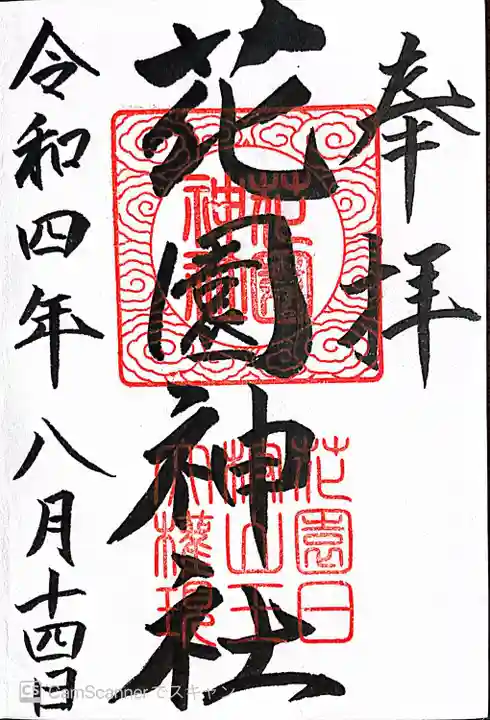 奉拝
花園神社
花園
神社
花園日
枝山王
大権現
令和四年八月十四日
CS CamScannerでスキャン